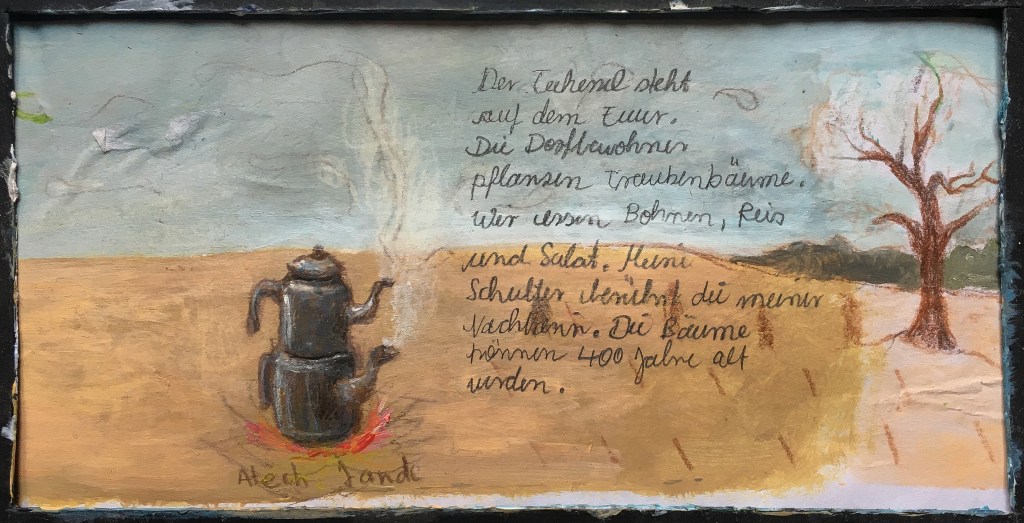 Der Techenel steht
auf dem Euur.
Die Dorfbewohner
pflanzen Traubenbäume.
Wir essen Bohnen, Reis
und Salat. Meine
Schulter berührt die meiner
Nachbarin. Die Bäume
können 400 Jahre alt
werden.
Atech Jandi